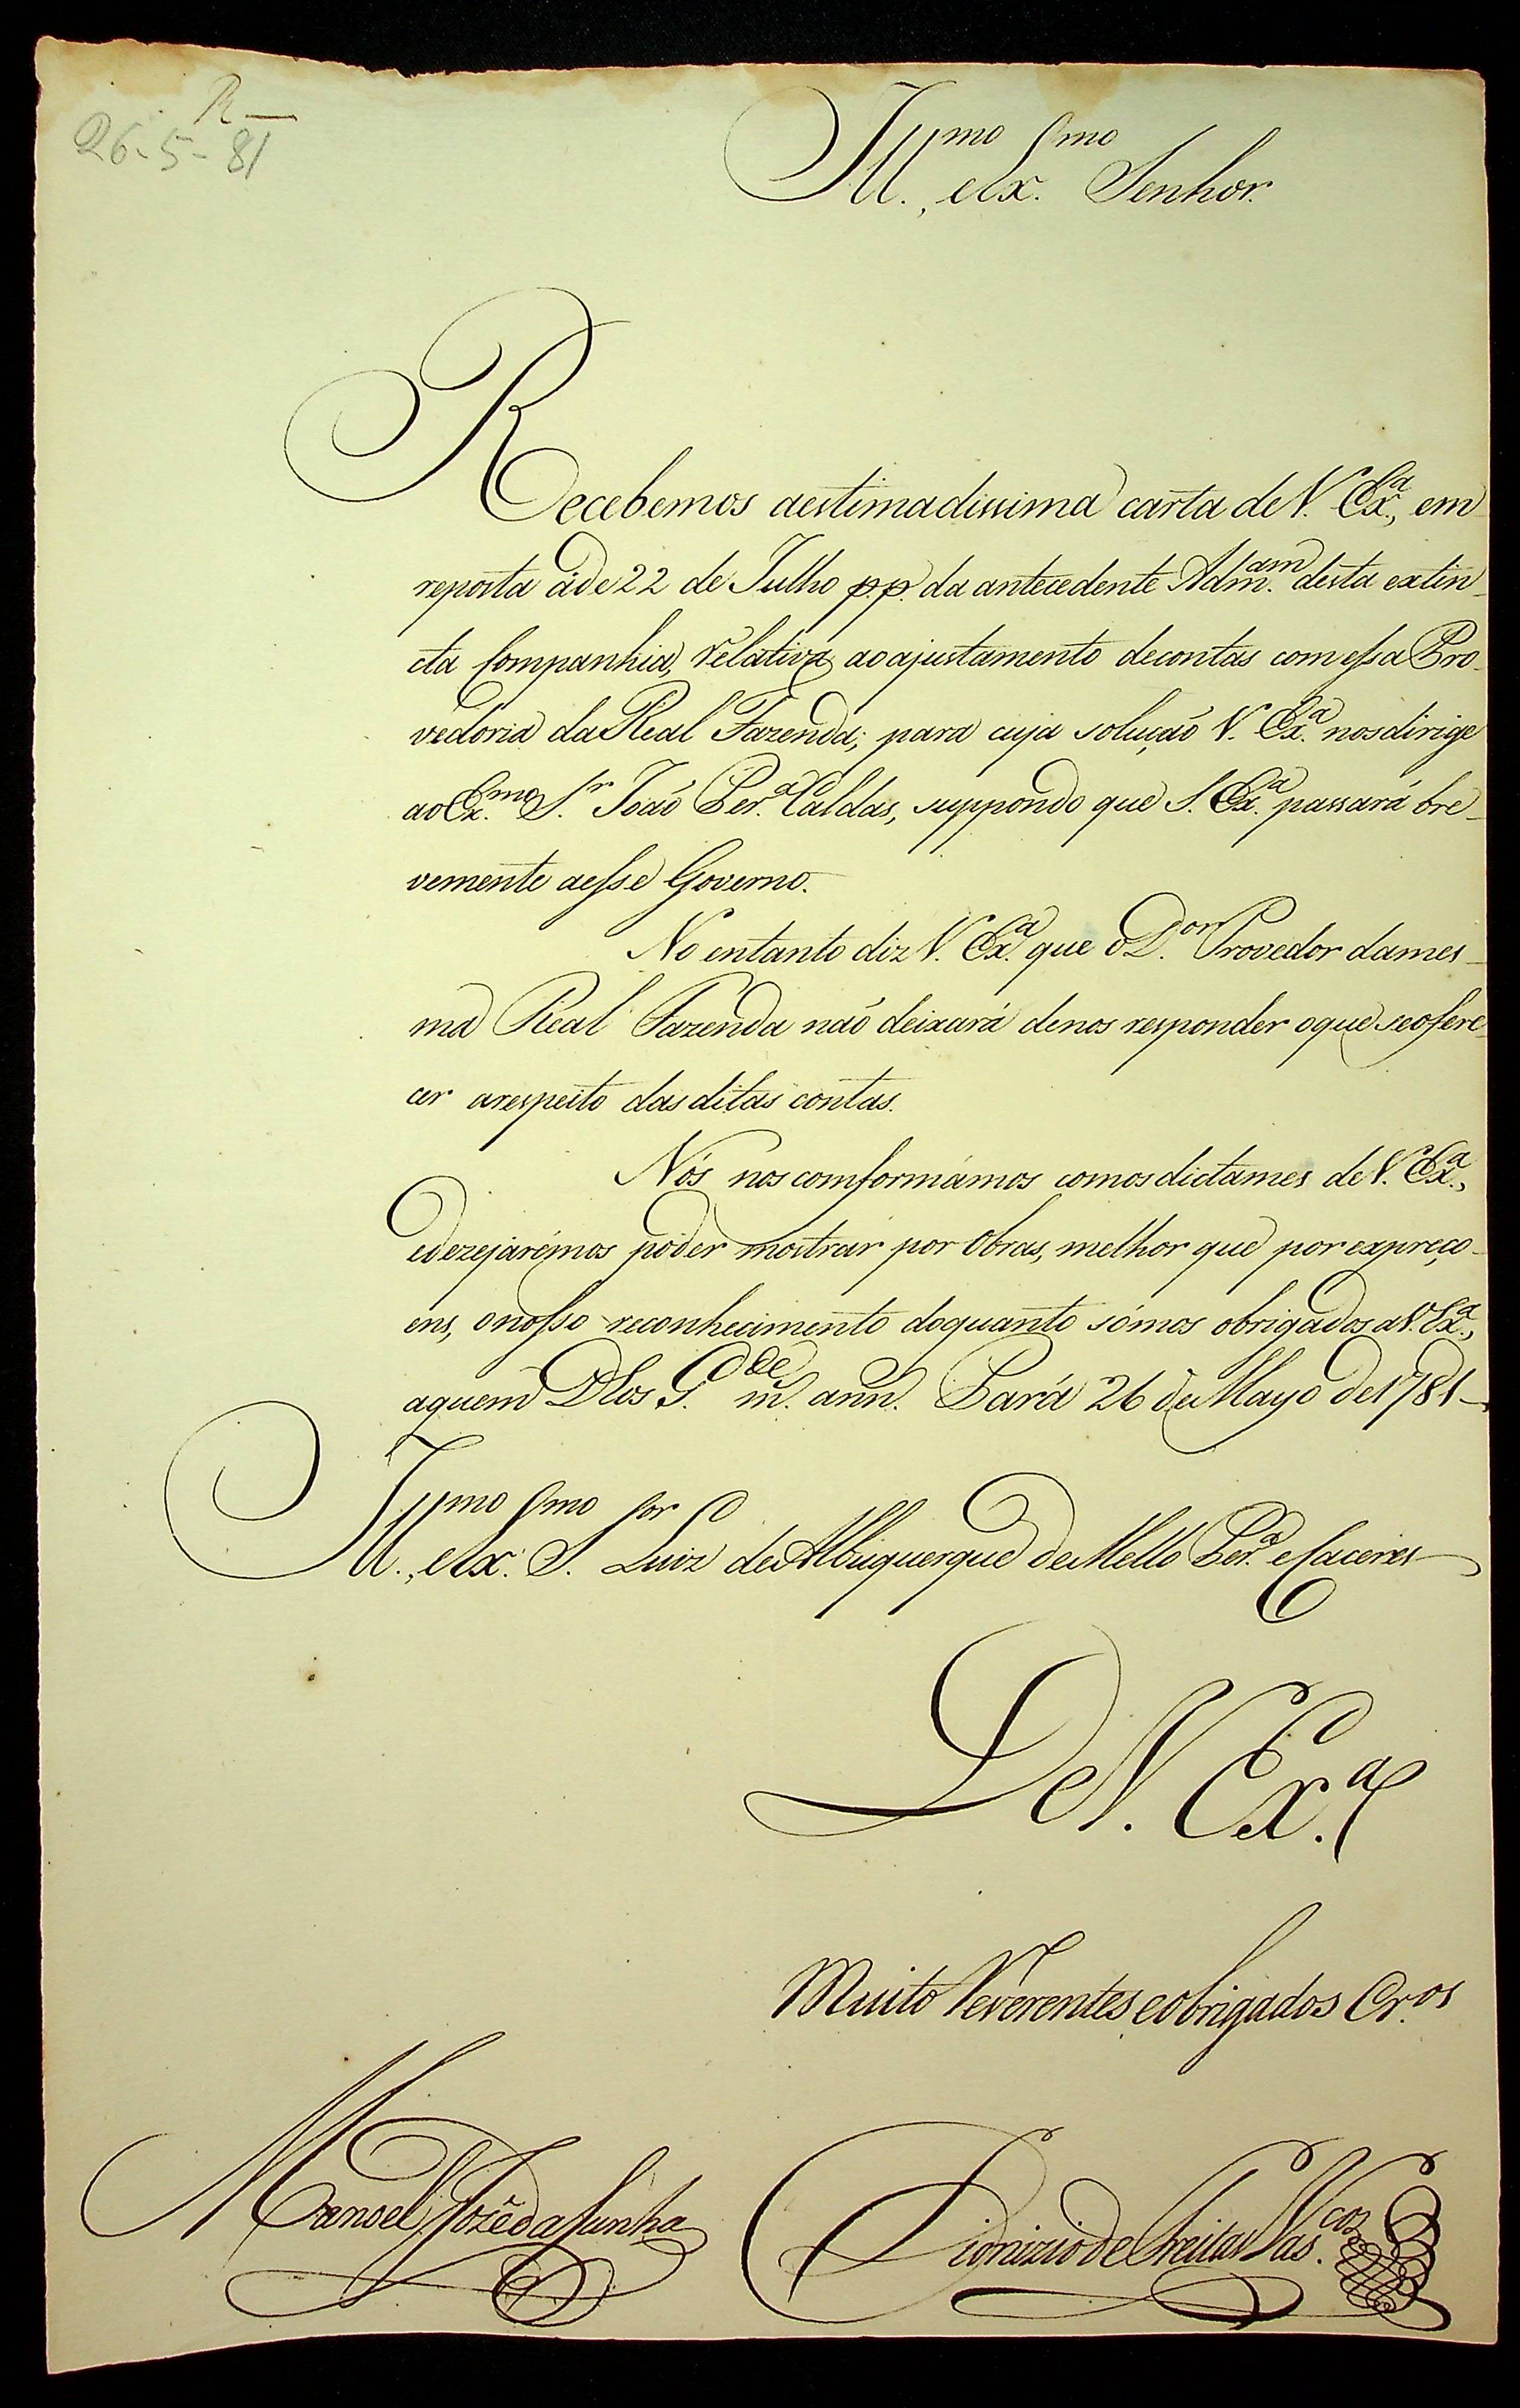 R
26-5-81
Ill.mo, e Ex.mo Senhor.
Recebemos aestimadissima carta de V. Ex.a, em
reposta ádé 22 de Julho p.p. da antecedente Adm.am desta extin_
cta Companhia, relativa ao ajustamento decontas com essa Pro_
vedoria da Real Fazenda; para cuja solução V. Ex.a nos dirige
ao Ex.mo S.r João Per.a Caldas, suppondo que S. Ex.a passará bre_
vemente aesse Governo.
No entanto diz V. Ex.a que o D.or Provedor dames_
ma Real Fazenda não deixará denos responder oque seofere_
cer arespeito das ditas contas.
Nós nos comformámos comos dictames de V. Ex.a,
edezejarémos poder mostrar por obras, melhor que por expreço_
ens, onosso reconhecimento doquanto sómos obrigados a V. Ex.a,
aquem Deos G.de m. ann. Pará 26 de Mayo de 1781_
Ill.mo, e Ex.mo S.or Luiz de Albuquerque de Mello Per.a e Caceres
De V. Ex.a
Muito Reverentes eobrigados Cr.os
Manoel Jozé da Cunha Dionizio de Freitas Vas.cos